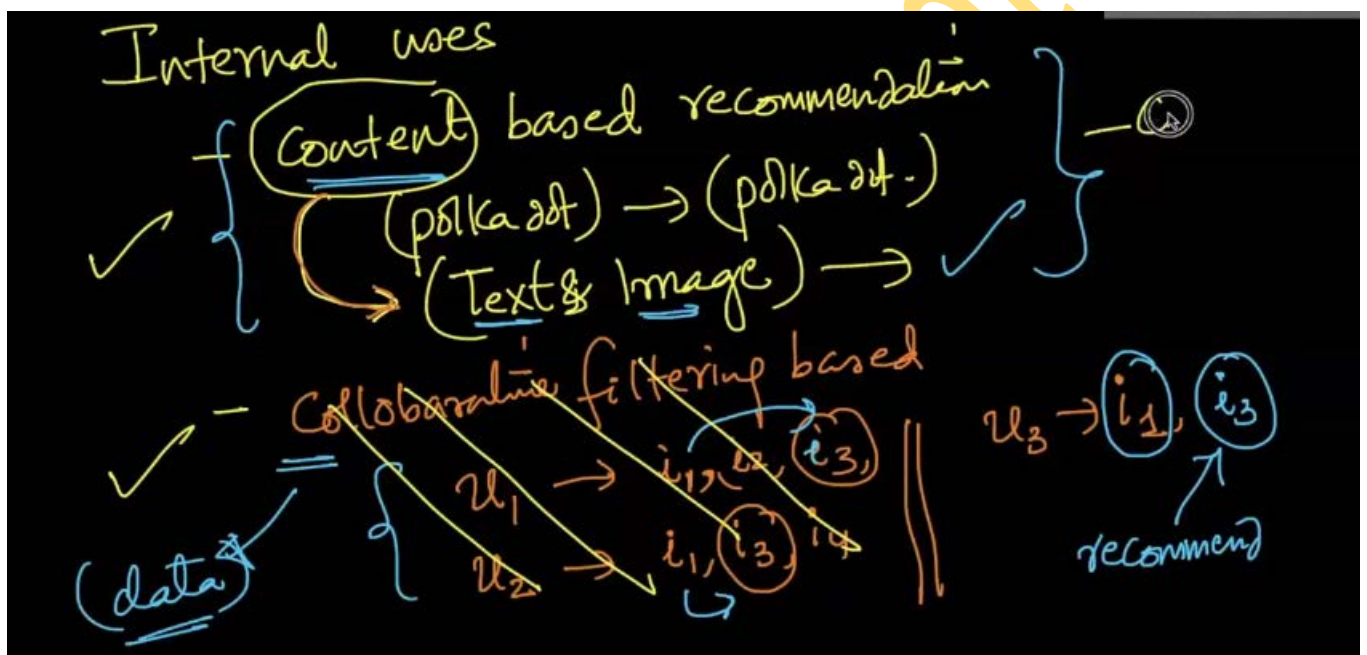 Internal uses
- Content based recommendation
(polka dot) → (polka dot.)
(Text & Image) → ✓
- Collobarative filtering based
u1 → i1, i2, i3,
u2 → i1, i3, i4
u3 → i1, i3
recommend
(data)